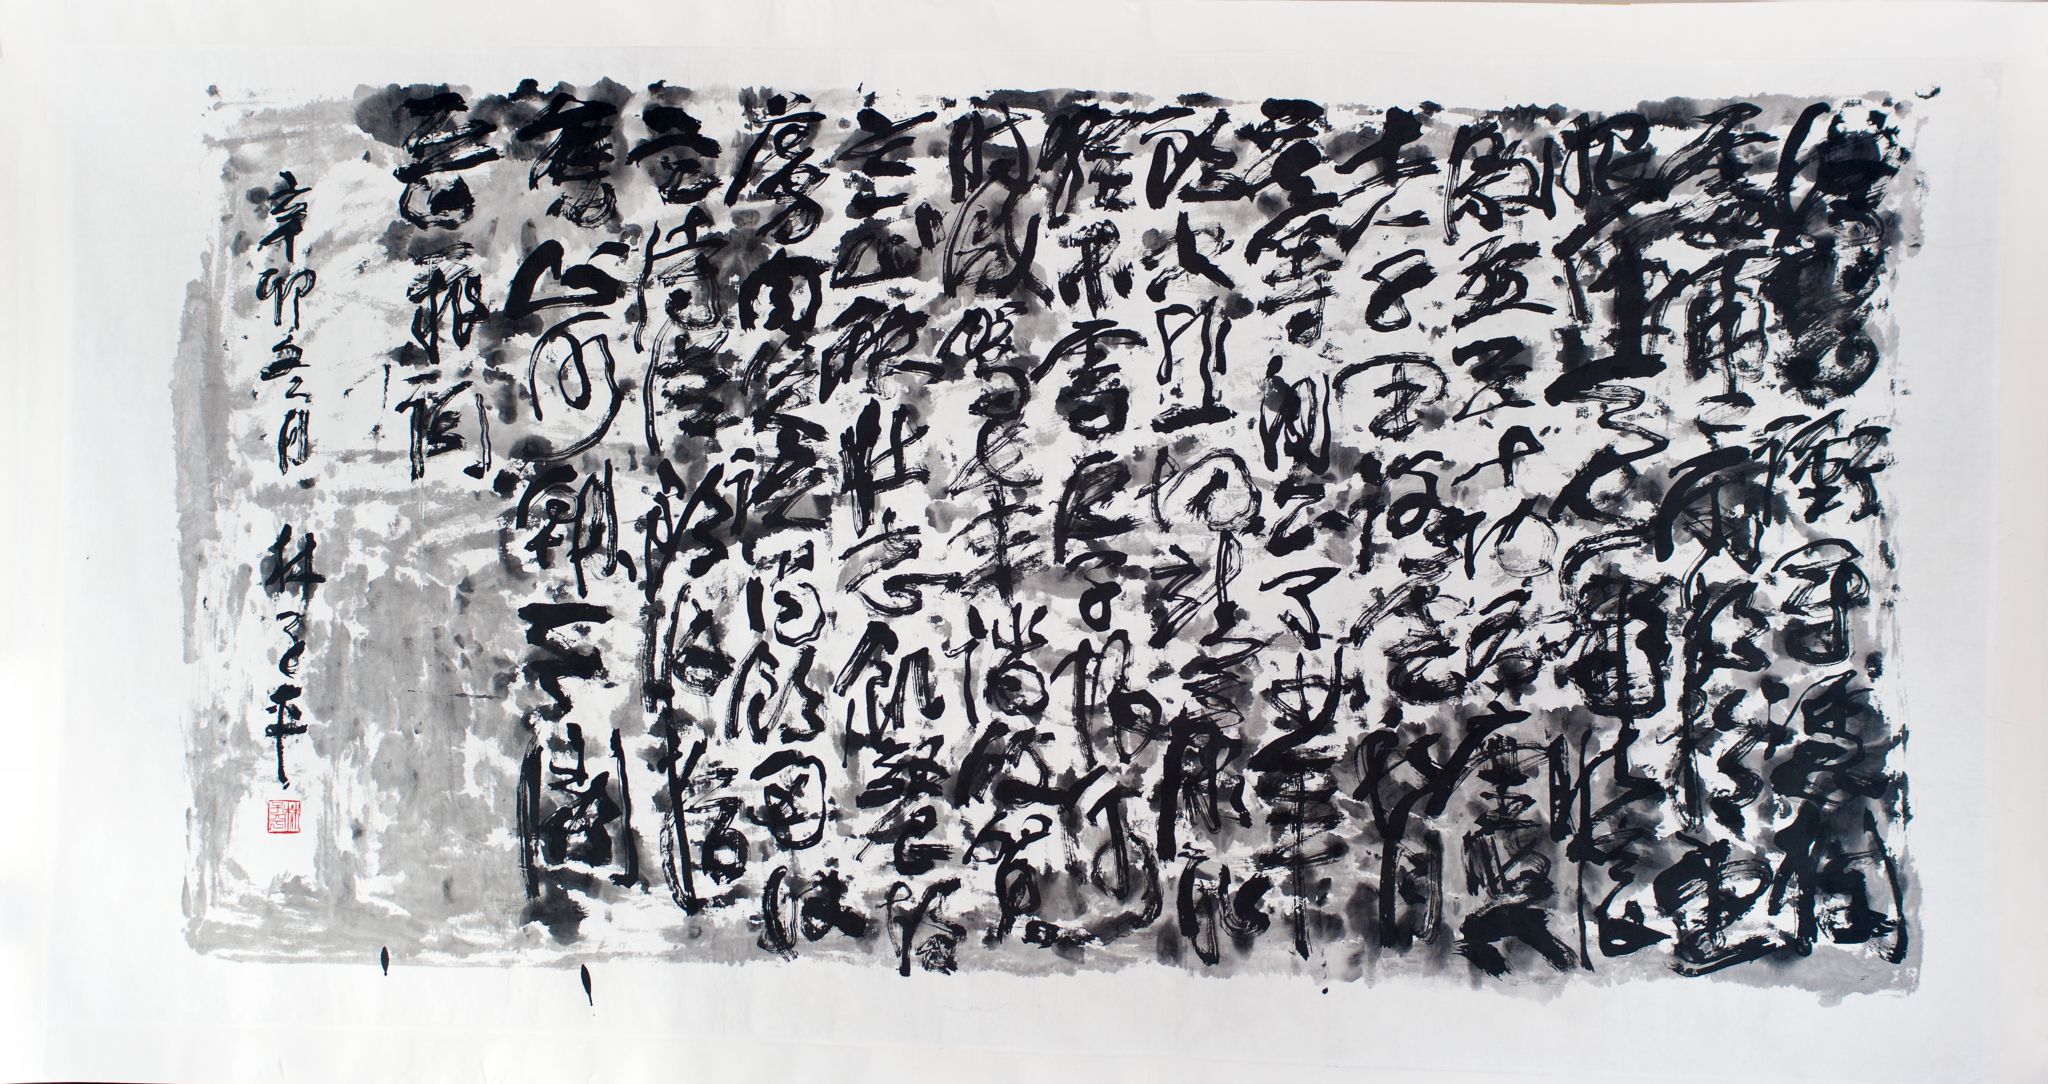 怒髮衝冠憑欄
處瀟瀟雨歇抬望
眼仰天長嘯壯
懷激烈三十功名塵與
土八千里路雲和月
莫等閒白了少年
頭空悲切靖康恥
猶未雪臣子恨何
時滅駕長車踏破賀
蘭山缺壯志飢餐胡
虜肉笑談渴飲匈奴
血待從頭收拾
舊山河朝天闕
岳飛詞
辛卯五月 林子平